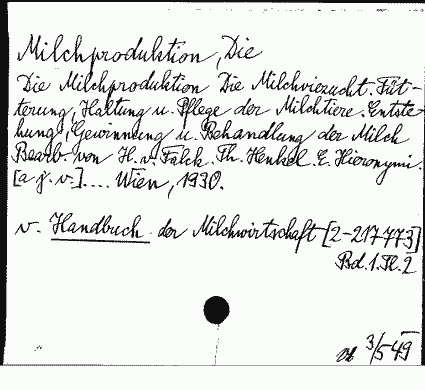 Milchproduktion, Die
Die Milchproduktion Die Milchviezucht. Füt-
terung, Haltung u. Pflege der Milchtiere. Entste-
hung, Gewinnung u. Behandlung der Milch
Bearb. von H. v. Falck. Th. Henkel. E. Hieronymi.
[a j. v.].... Wien, 1930.
v. Handbuch der Milchwirtschaft [2-217773]
Bd. 1. Tl. 2
3/549